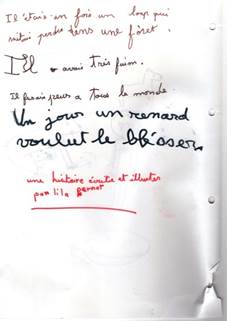 Il étais un fois un loup qui
s'étais perdus dans une fôret.
Il avait très faion.
Il fesais peurs a tous le monde.
Un jour un renard
voulut le blésser
une histoire écrite et illustrer
par lila pernot